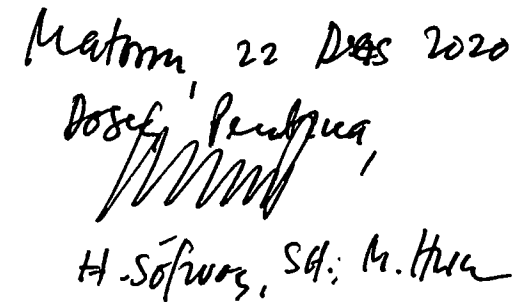 Mataram, 22 Des 2020
Dosen Pembina,
H. Sofwan, SH., M.Hum